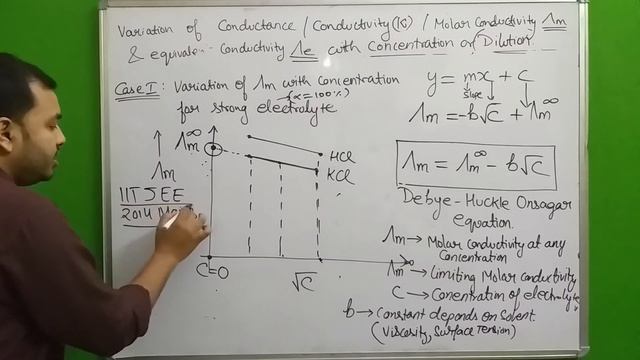 Variation of Conductance / Conductivity (K) / Molar Conductivity Λm
& equivalent Conductivity Λe with Concentration or Dilution.
Case I : Variation of Λm with concentration
for strong electrolyte
(α=100%)
y = mx + c
Slope
Λm = -b√C + Λm^∞
Λm = Λm^∞ - b√C
Debye-Huckle Onsagar
equation.
Λm → Molar conductivity at any
Concentration
Λm^∞ → Limiting Molar conductivity
C → Conentration of electrolyte
b → Constant depends on Solvent.
(Viscosity, Surface Tension)
Λm^∞
Λm
HCl
KCl
IIT JEE
2014
C=0
√C